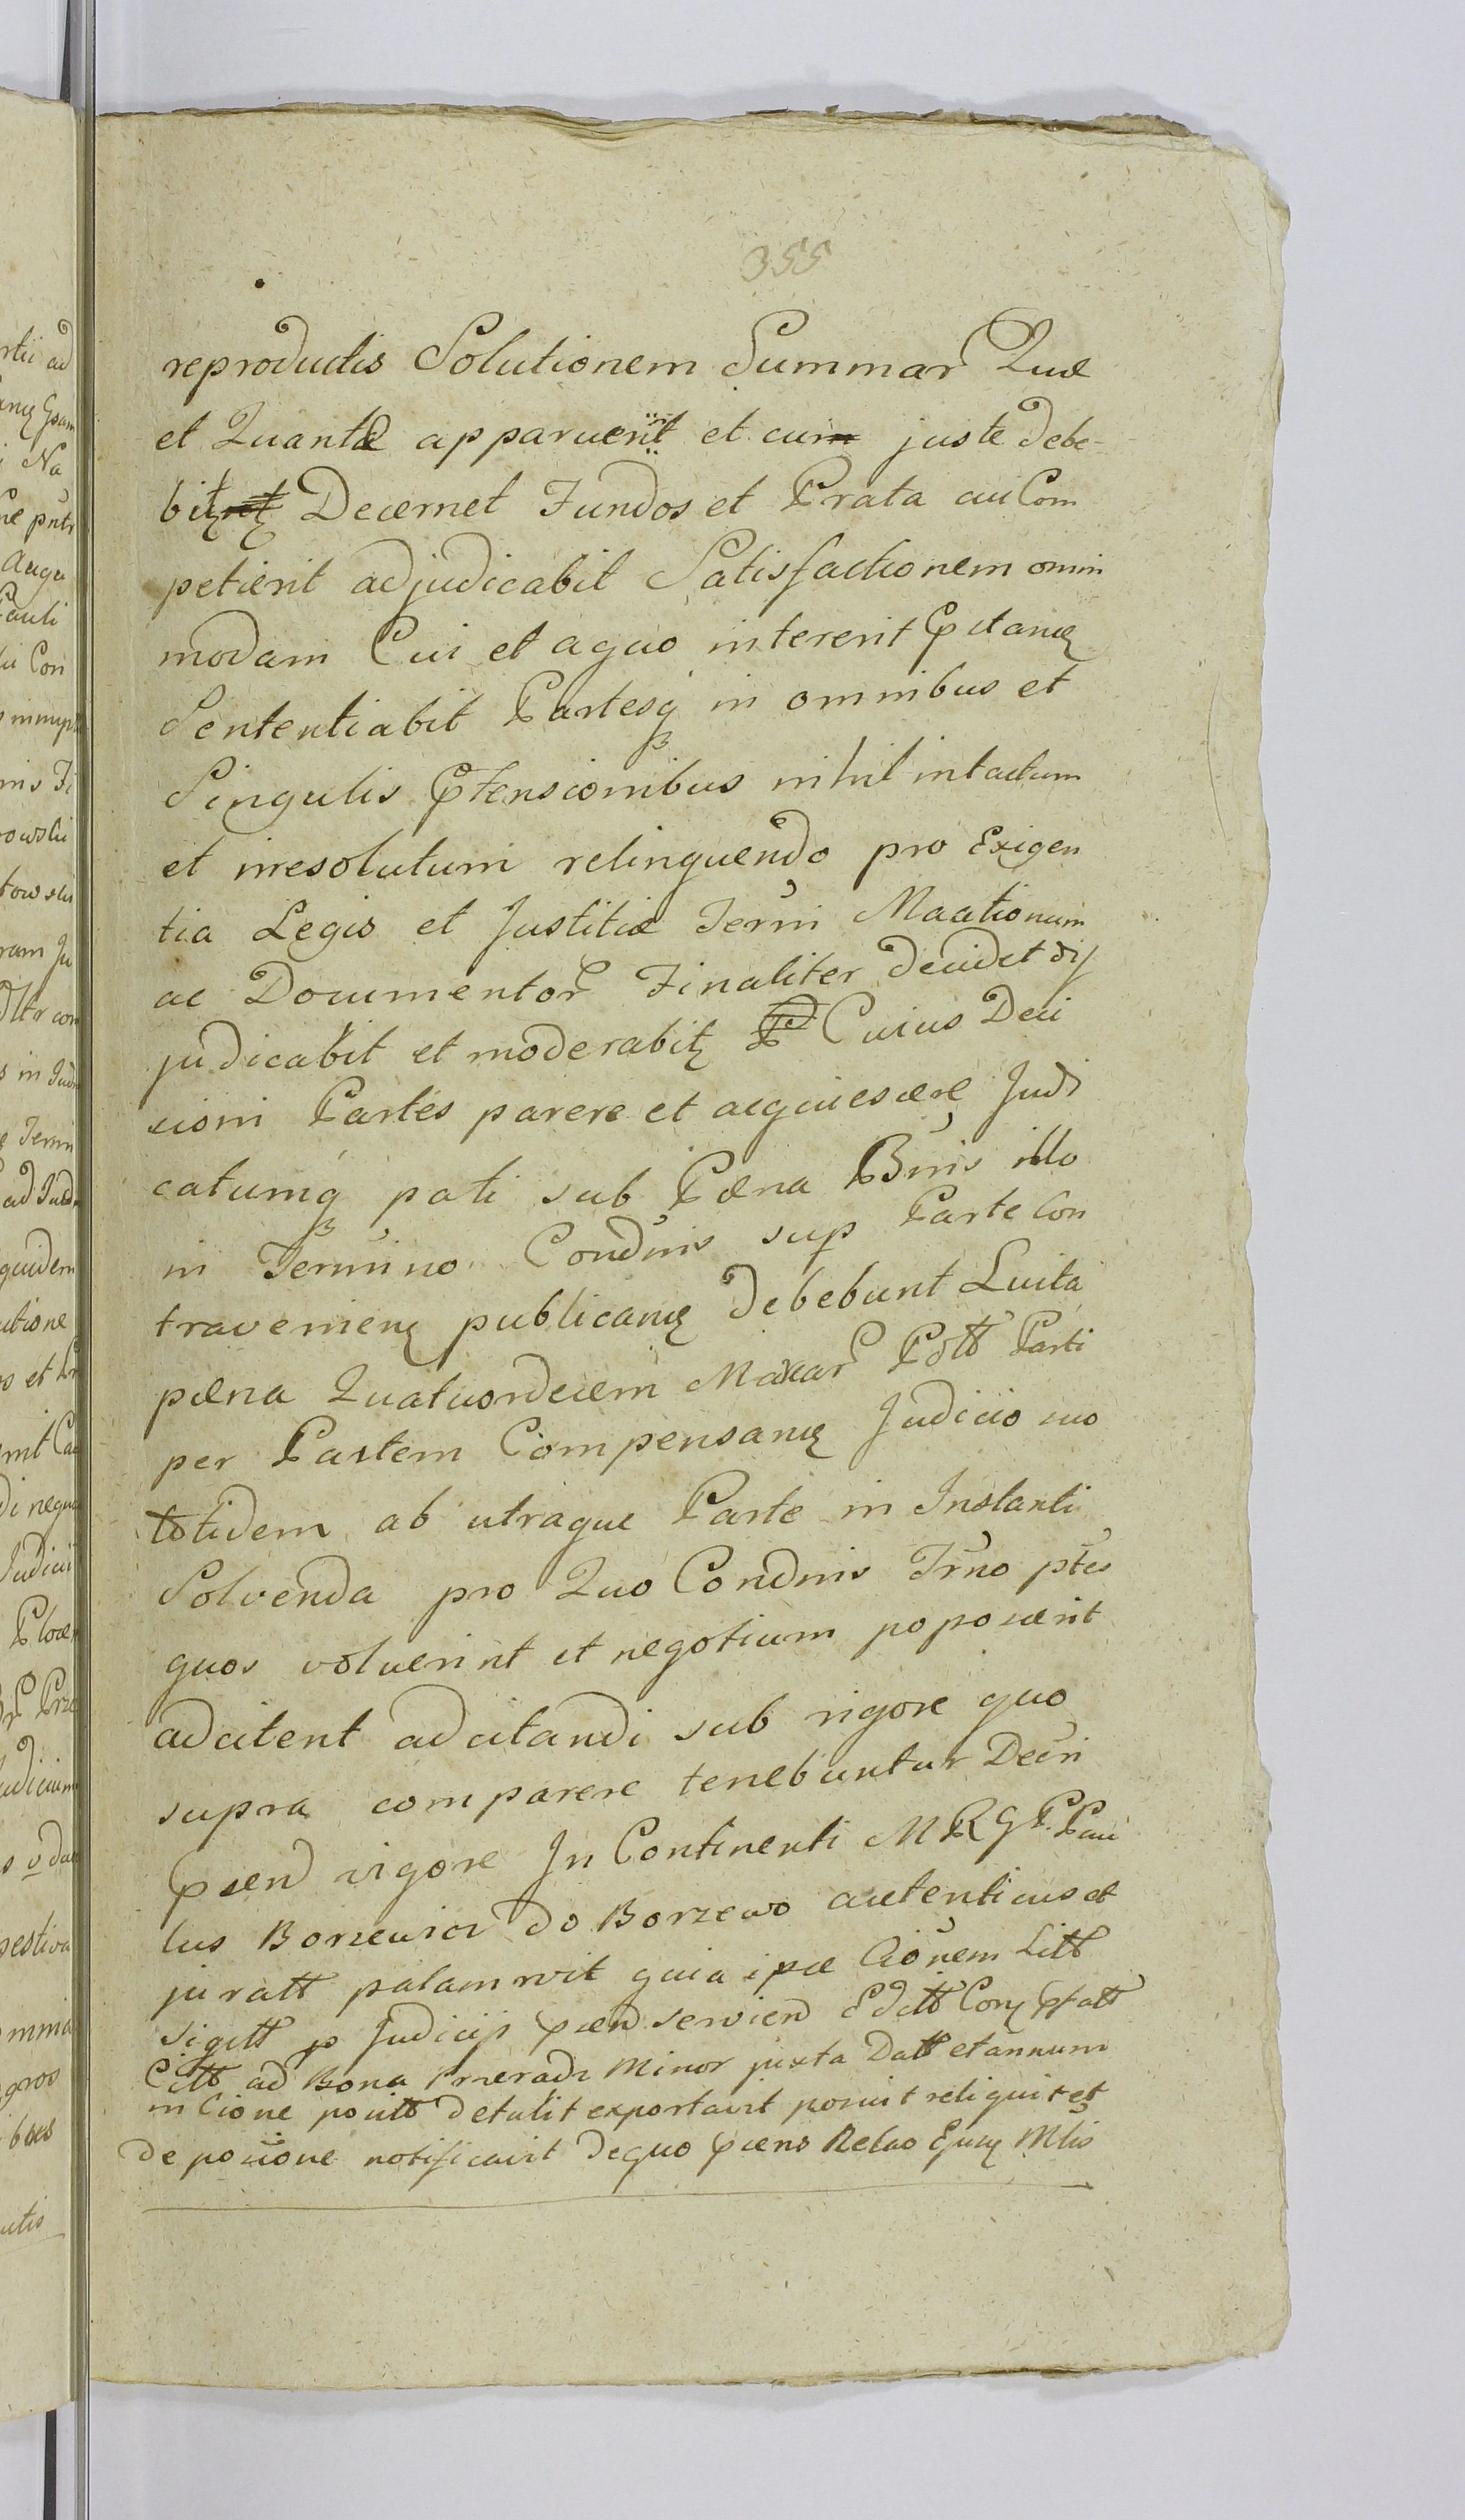 355
reproductis Solutionem Summar Quæ
et Quantæ apparuerit et cui juste debe-
bitz Decernet Fundos et Prata cui Com
petierit adjudicabit Satisfactionem omni
modam Cui et aquo intererit Pstanæ
Sententiabit Partesq in omnibus et
Singulis Ptensionibus nihil intactum
et irresolutum relinquendo pro Exigen
tia Legis et Justitiæ Termi Maationum
ac Documentor Finaliter decidet dij
judicabit et moderabitz Cuius Deci
sioni Partes parere et acquiescere Judi
catumq pati sub Pæna Bnis illo
in Termino Condnis sup Parte Con
traveniens publicanæ debebunt Luita
pæna Quatuordecem Maxar Poltt Parti
per Partem Compensanæ Judicio suo
totidem ab utraque Parte in Instanti
Solvenda pro Quo Condnis Trno ptes
quos voluerint et negotium poposcerit
adcitent adcitandi sub rigore quo
supra comparere tenebuntur Decri
pñd vigore In Continenti MRGP. Pau
lus Borzewicz do Borzewo autenticus et
juratt palam rvit quia ipse Cionem Litt
sigtt p Judicijs psend serviend Editt Cora psatt
Citt ad Bona Prreradz Minor juxta Datt et annum
in Cione positt detulit exportavit posuit reliquit et
de positione notificavit dequo psens Relao Ejusz Mlis

rtii ad
i Na
Augu
Pauli
Con
owski
towski
ram Ju
in Jud
Termi
ad Jud
quidem
utione
os et
Judicii
Judicium
gros
utis